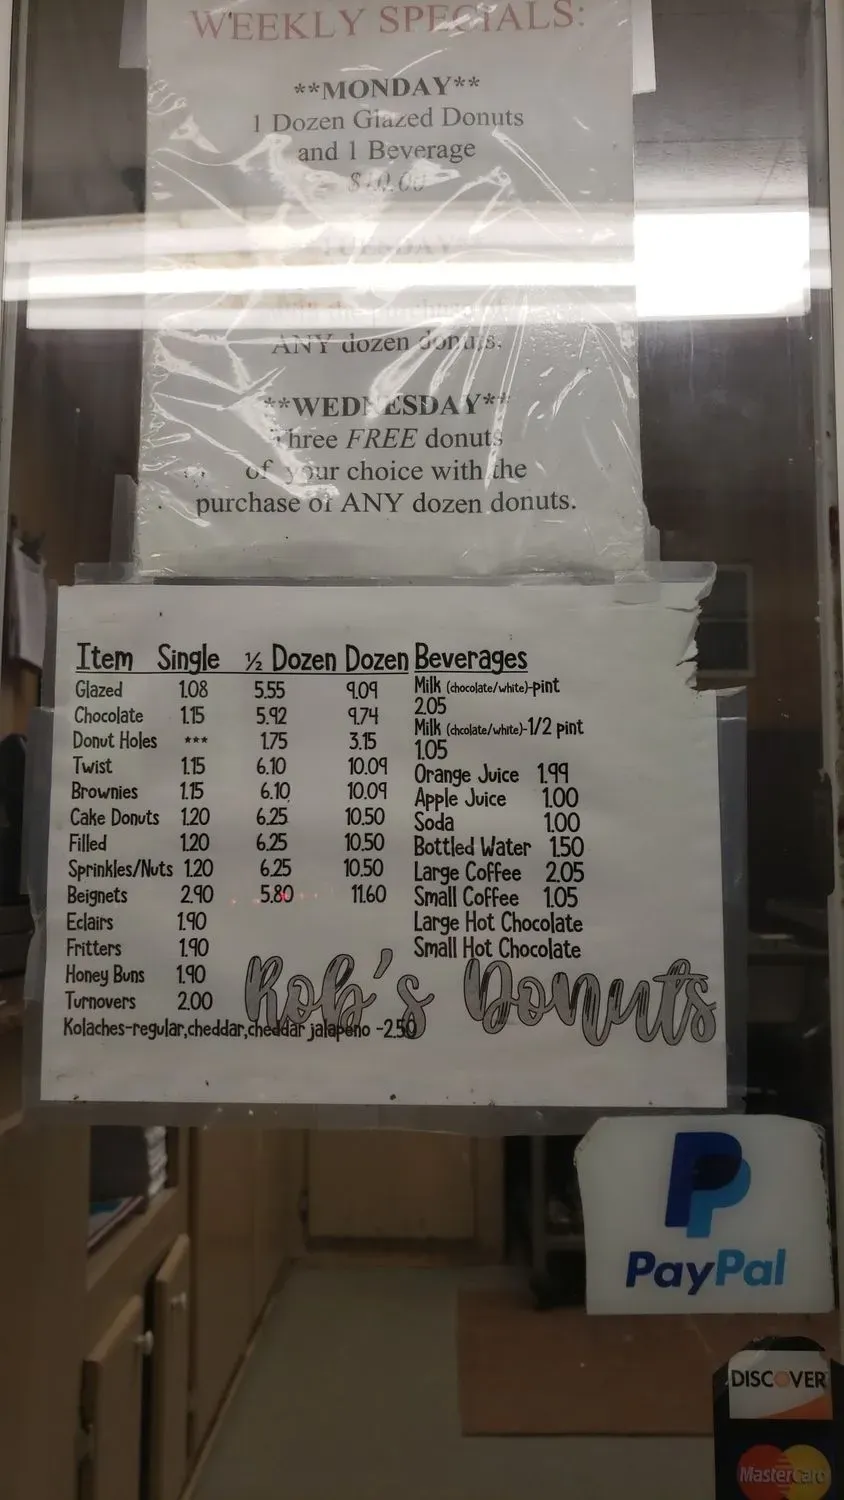 WEEKLY SPECIALS:
**MONDAY**
1 Dozen Glazed Donuts
and 1 Beverage
$10.00
**TUESDAY**
with the purchase of
ANY dozen donuts.
**WEDNESDAY**
Three FREE donuts
of your choice with the
purchase of ANY dozen donuts.
Item Single ½ Dozen Dozen
Glazed 1.08 5.55 9.09
Chocolate 1.15 5.92 9.74
Donut Holes *** 1.75 3.15
Twist 1.15 6.10 10.09
Brownies 1.15 6.10 10.09
Cake Donuts 1.20 6.25 10.50
Filled 1.20 6.25 10.50
Sprinkles/Nuts 1.20 6.25 10.50
Beignets 2.90 5.80 11.60
Eclairs 1.90
Fritters 1.90
Honey Buns 1.90
Turnovers 2.00
Kolaches-regular,cheddar,cheddar jalapeno -2.50
Beverages
Milk (chocolate/white)-pint
2.05
Milk (chcolate/white)-1/2 pint
1.05
Orange Juice 1.99
Apple Juice 1.00
Soda 1.00
Bottled Water 1.50
Large Coffee 2.05
Small Coffee 1.05
Large Hot Chocolate
Small Hot Chocolate
Rob's Donuts
PayPal
DISCOVER
MasterCard